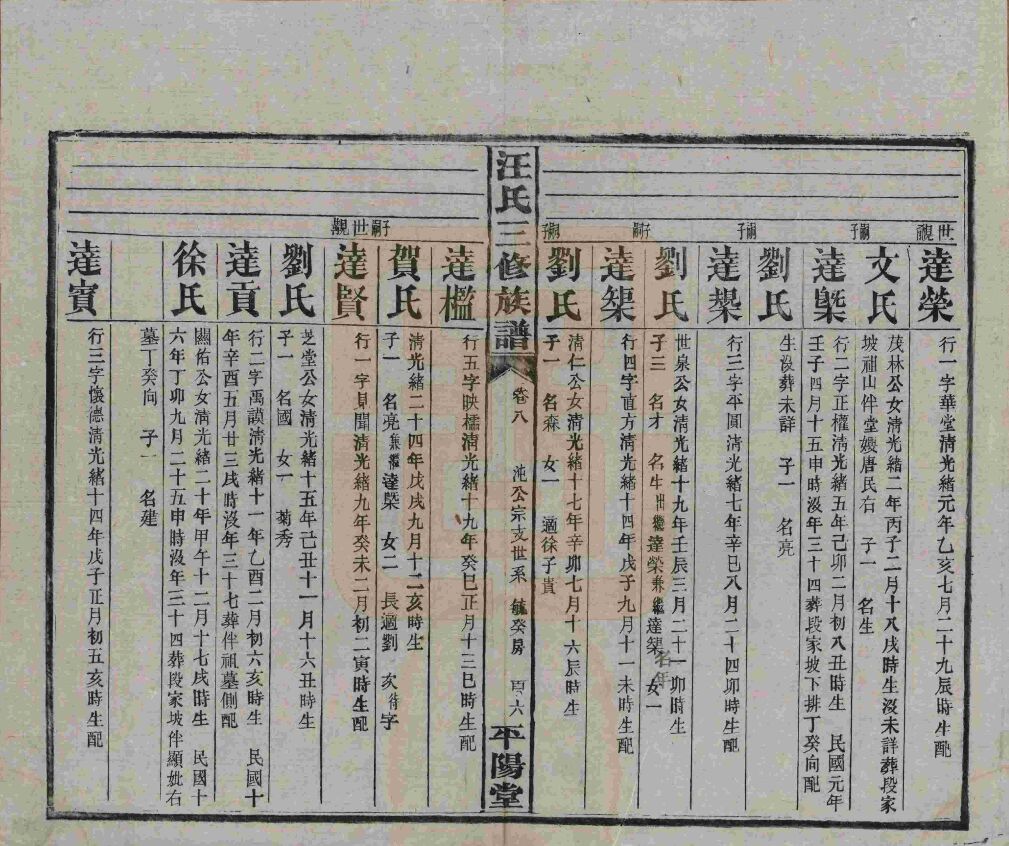 世觀嗣子
達榮
行一字華堂清光緒元年乙亥七月二十九辰時生配
文氏
茂林公女清光緒二年丙子二月十八戌時生沒未詳葬段家
坡祖山伴堂嫂唐民右 子一 名生
嗣子
達槩
行二字正權清光緒五年己卯二月初八丑時生 民國元年
壬子四月十五申時沒年三十四葬段家坡下排丁癸向配
劉氏
生沒葬未詳 子一 名亮
嗣子
達槼
行三字平圓清光緒七年辛巳八月二十四卯時生配
劉氏
世泉公女清光緒十九年壬辰三月二十一卯時生
子三 名才 名生出繼達榮兼繼達榘 名年 女一
嗣子
達榘
行四字直方清光緒十四年戊子九月十一未時生配
劉氏
清仁公女清光緒十七年辛卯七月十六辰時生
子一 名森 女一 適徐子貴
嗣子
汪氏三修族譜
卷八 沌公宗支世系 毓癸房 六
平陽堂
達檻
行五字映櫺清光緒十九年癸巳正月十三巳時生配
賀氏
清光緒二十四年戊戌九月十二亥時生
子一 名亮兼繼達槩 女二 長適劉 次待字
世觀嗣子
達賢
行一字見聞清光緒九年癸未二月初二寅時生配
劉氏
芝堂公女清光緒十五年己丑十一月十六丑時生
子一 名國 女一 菊秀
達貢
行二字禹謨清光緒十一年乙酉二月初六亥時生 民國十
年辛酉五月廿三戌時沒年三十七葬伴祖墓側配
徐氏
關佑公女清光緒二十年甲午十二月十七戌時生 民國十
六年丁卯九月二十五申時沒年三十四葬段家坡伴顯妣右
墓丁癸向 子一 名建
達賓
行三字懷德清光緒十四年戊子正月初五亥時生配